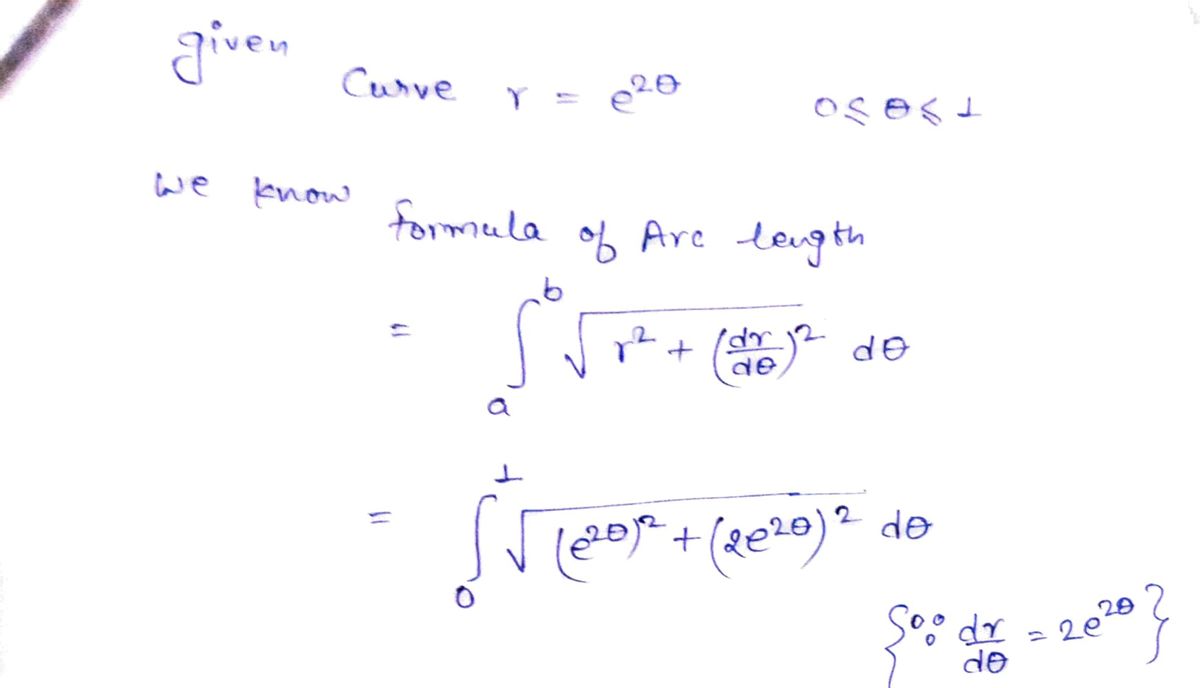 given
Curve r = e^{2θ} 0 ≤ θ ≤ 1
we know
formula of Arc length
= ∫_a^b √(r² + (dr/dθ)²) dθ
= ∫_0^1 √((e^{2θ})² + (2e^{2θ})²) dθ
{∵ dr/dθ = 2e^{2θ}}